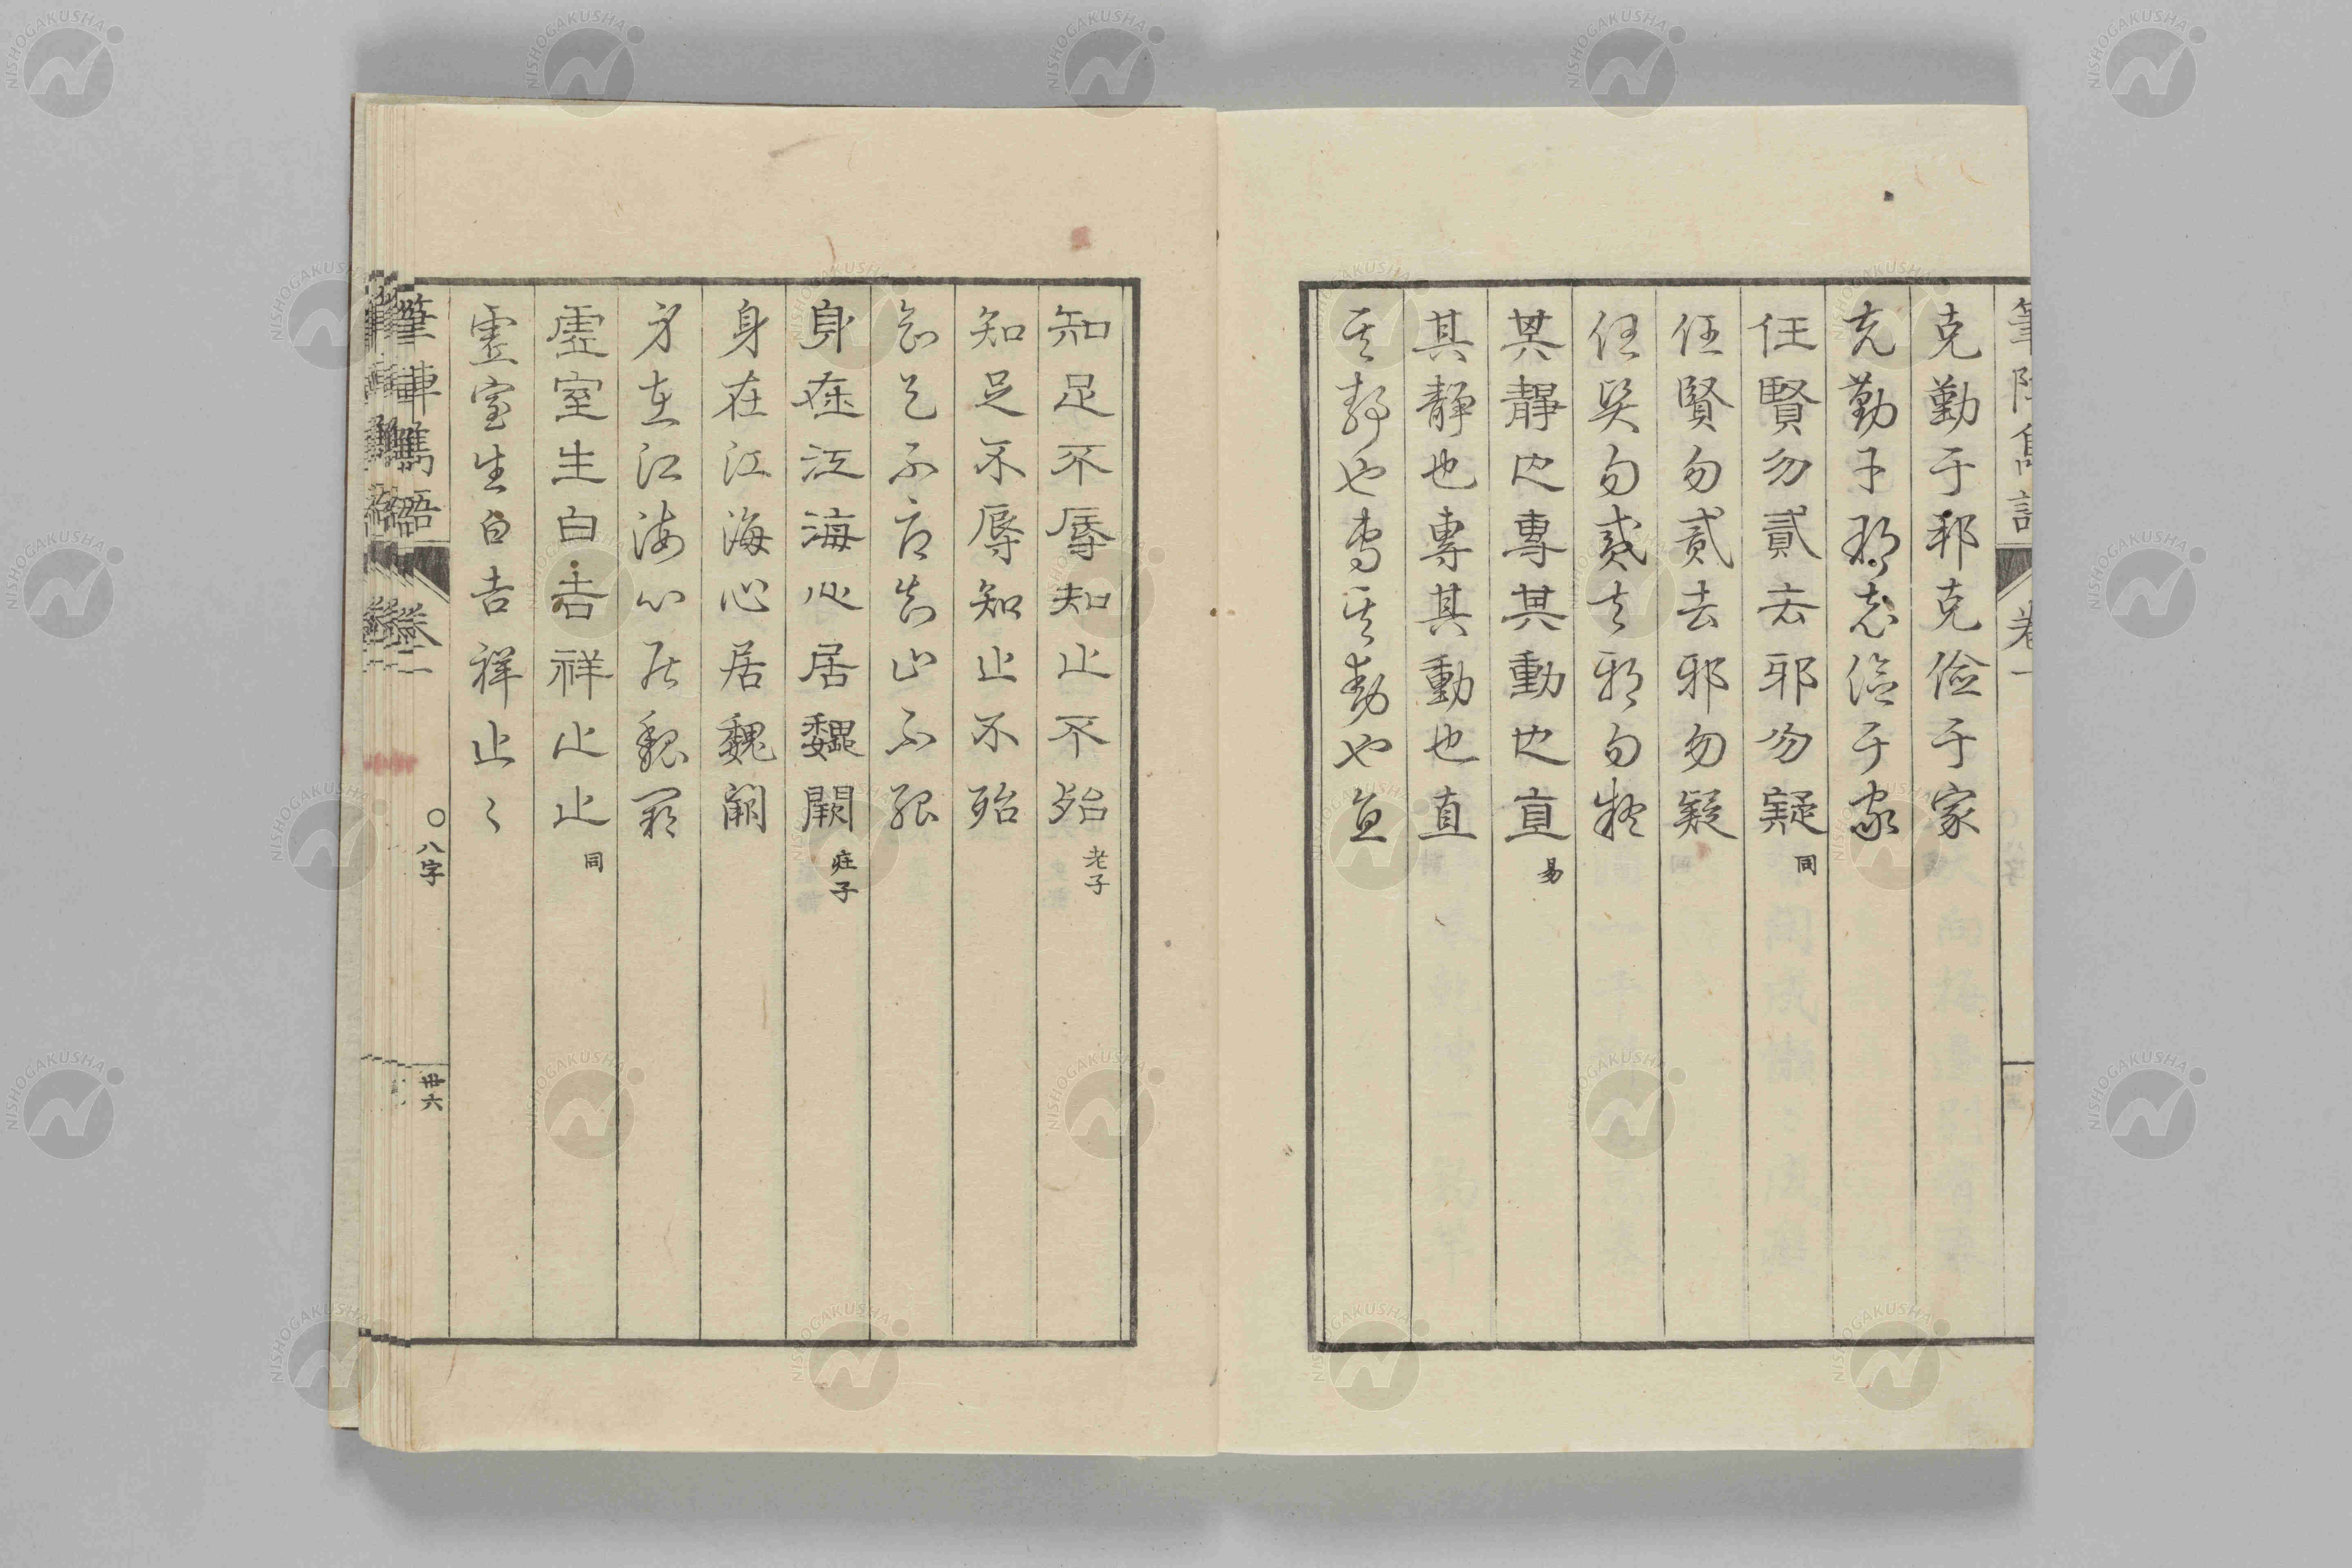 筆陣雋語 卷一
克勤于邦克儉于家
克勤于邦克儉于家
任賢勿貳去邪勿疑 同
任賢勿貳去邪勿疑
任賢勿貳去邪勿疑
其靜也專其動也直 易
其靜也專其動也直
其靜也專其動也直
知足不辱知止不殆 老子
知足不辱知止不殆
知足不辱知止不殆
身在江海心居魏闕 莊子
身在江海心居魏闕
身在江海心居魏闕
虛室生白吉祥止止 同
虛室生白吉祥止〻
筆陣雋語 卷一 〇八字 卌六
NISHOGAKUSHA